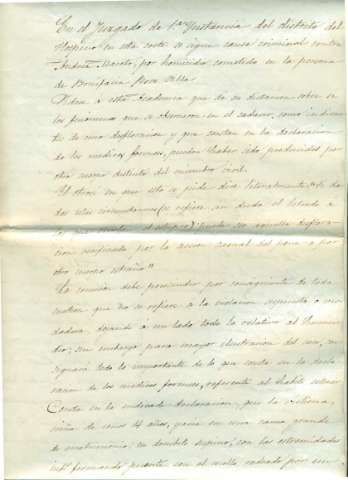 En el Juzgado de 1ª Instancia del distrito del
Hospicio en esta corte se sigue causa criminal contra
Andrés por homicidio cometido en la persona
de Bonifacia
Pidese a esta Academia que dé su dictamen sobre si
los fenómenos que se observaron en el cadáver, como indican
te de una desfloración y que constan en la declaración
de los médicos forenses, pueden haber sido producidos por
otro cuerpo distinto del miembro viril.
El otrosí en que esto se pide dice literalmente
dadas circunstancias se refiere, sin duda el letrado a
las que aquella desflora
ción verificada por la acción carnal del pene o por
otro cuerpo extraño"
La comisión debe prescindir por consiguiente de toda
cuestión que no se refiere a la violación supuesta o ver
dadera, dejando a un lado todo lo relativo al homici
dio; sin embargo para mayor ilustración del caso,
signará todo lo importante de lo que consta en la decla
ración de los médicos forenses, referente al hábito exterior
Consta en la indicada declaración, que la víctima,
niña de unos 14 años, yacía en una cama grande
de matrimonio, en decúbito supino, con las extremidades
infs formando puente con el